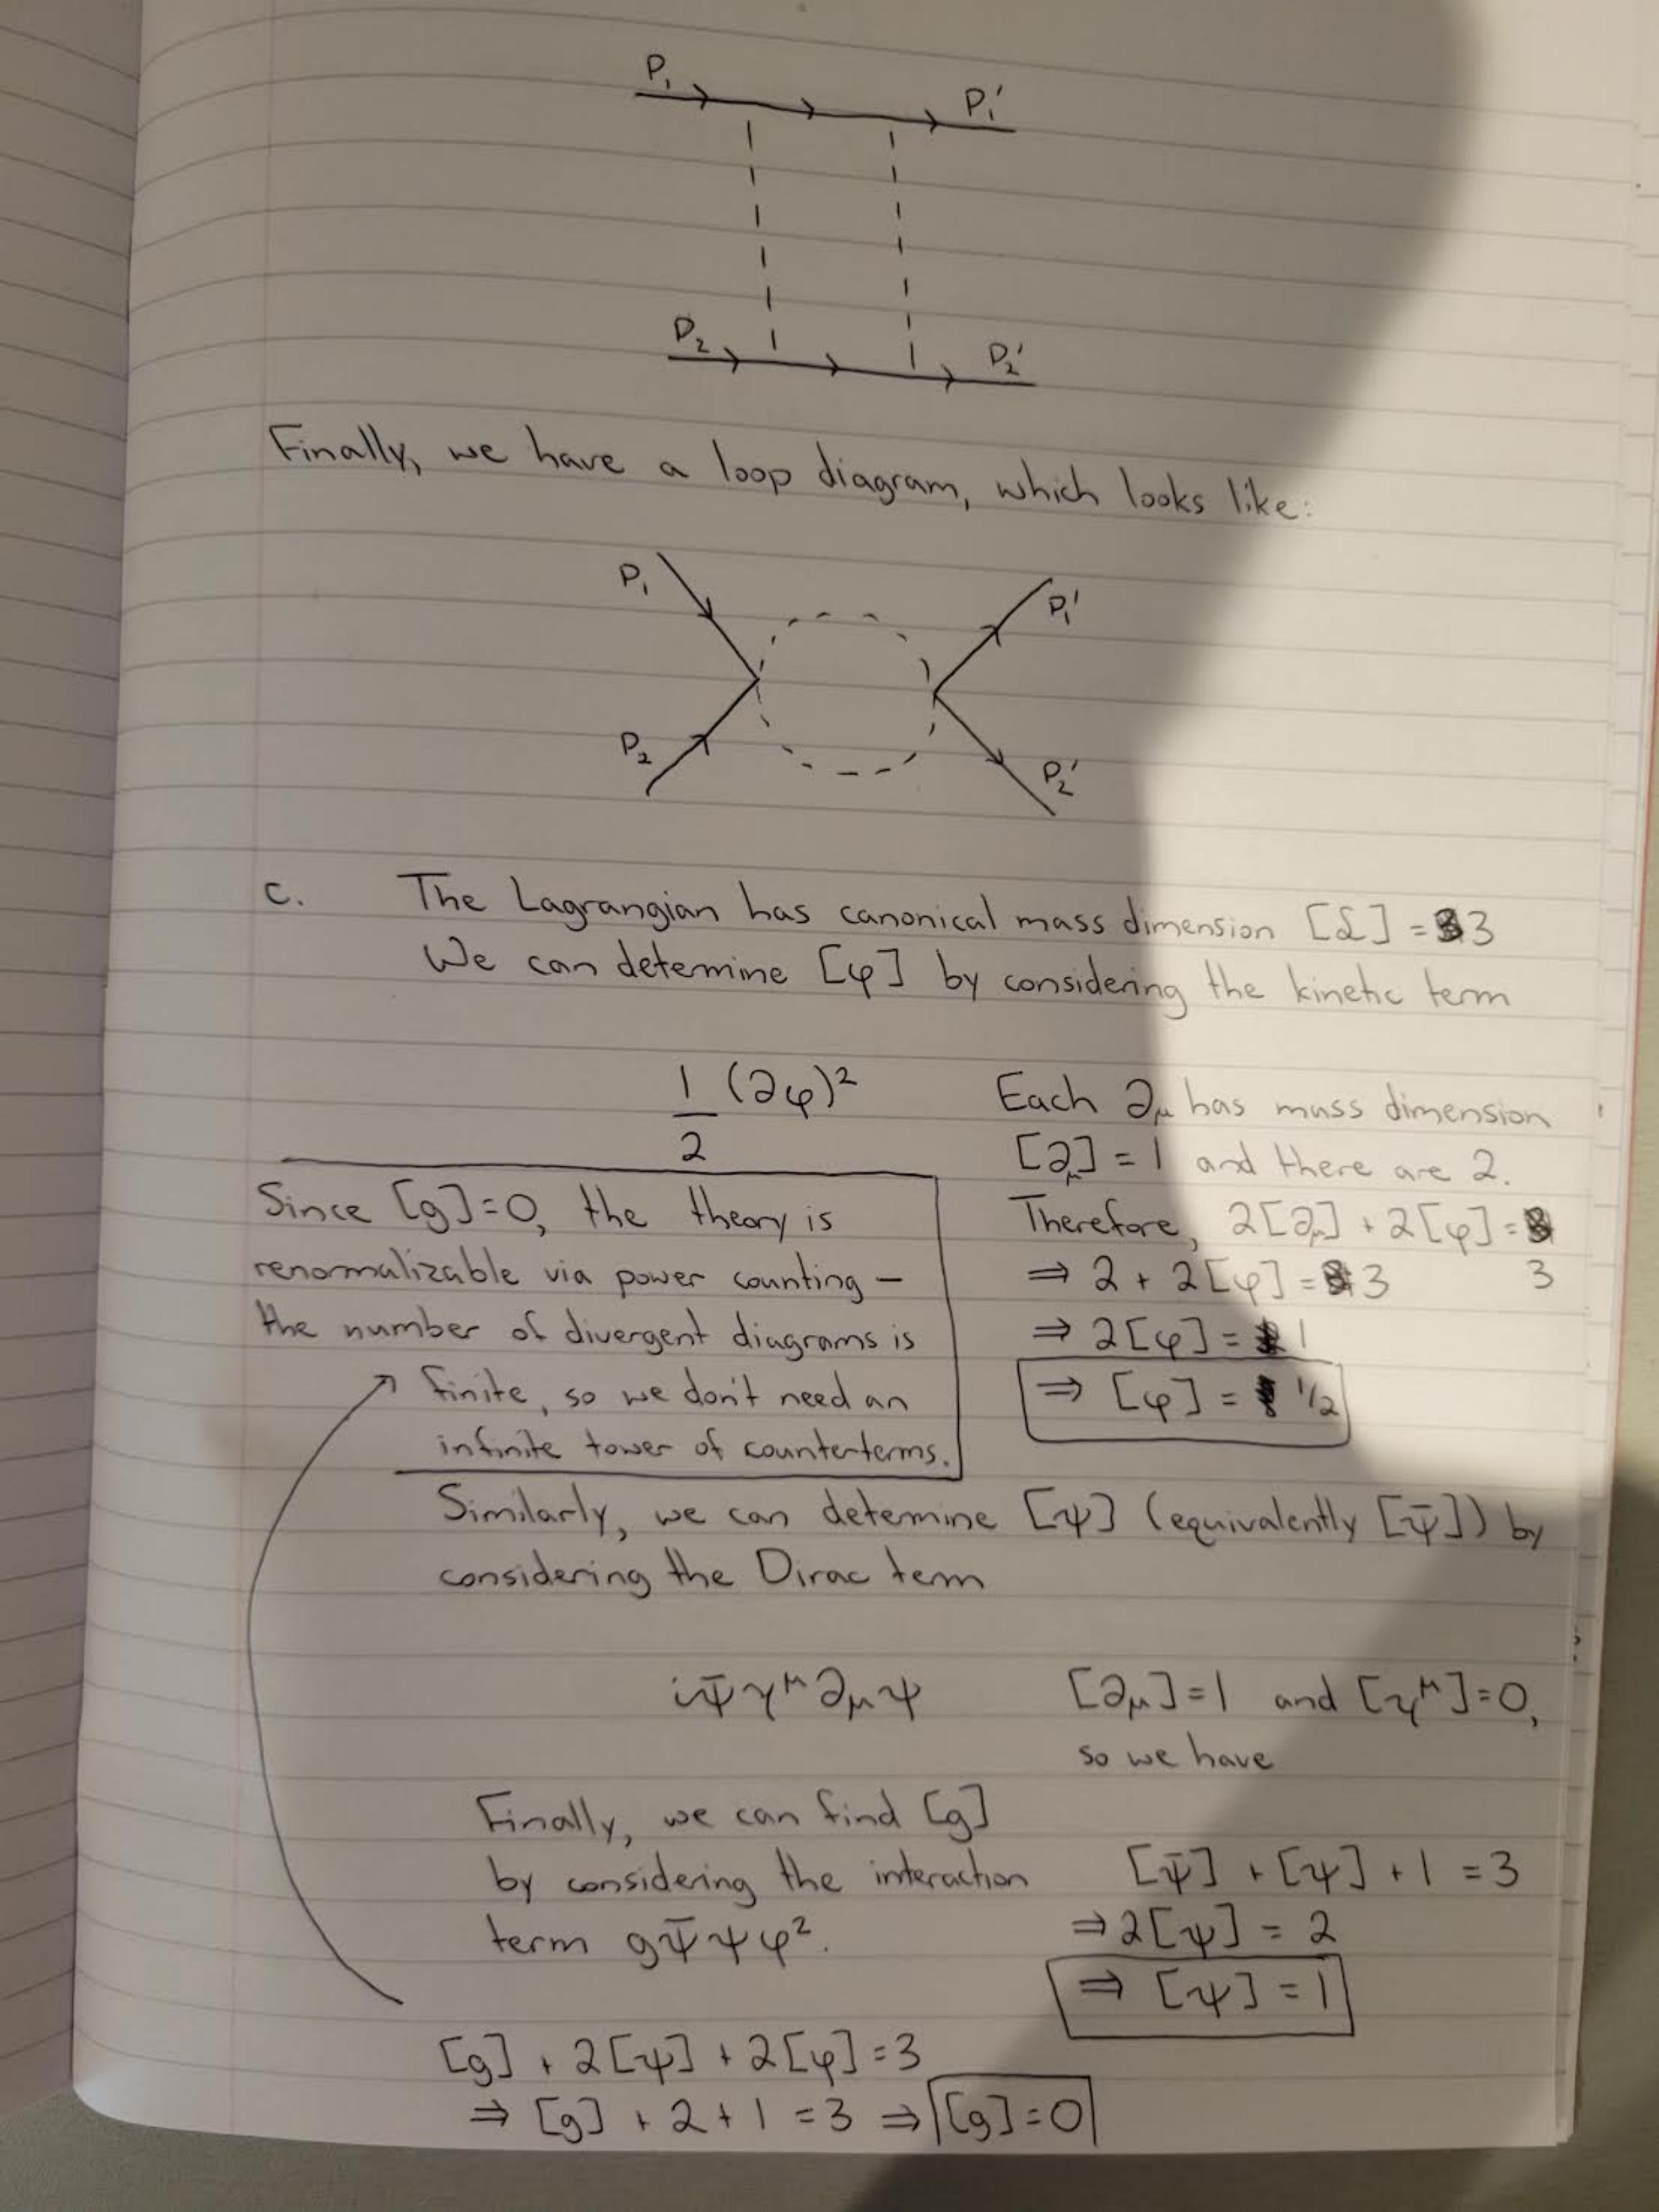 P₁ P₁'
P₂ P₂'
Finally, we have a loop diagram, which looks like:
P₁ P₁'
P₂ P₂'
c. The Lagrangian has canonical mass dimension [ℒ] = 3
We can determine [φ] by considering the kinetic term
1/2 (∂φ)²
Each ∂μ has mass dimension
[∂μ] = 1 and there are 2.
Therefore, 2[∂μ] + 2[φ] =
3
⇒ 2 + 2[φ] = 3
⇒ 2[φ] = 1
⇒ [φ] = 1/2
Since [g]=0, the theory is
renormalizable via power counting –
the number of divergent diagrams is
finite, so we don't need an
infinite tower of counterterms.
Similarly, we can determine [ψ] (equivalently [ψ̄]) by
considering the Dirac term
iψ̄γ^μ∂μψ
[∂μ]=1 and [γ^μ]=0,
so we have
[ψ̄] + [ψ] + 1 = 3
⇒ 2[ψ] = 2
⇒ [ψ] = 1
Finally, we can find [g]
by considering the interaction
term gψ̄ψφ².
[g] + 2[ψ] + 2[φ] = 3
⇒ [g] + 2 + 1 = 3 ⇒ [g]=0